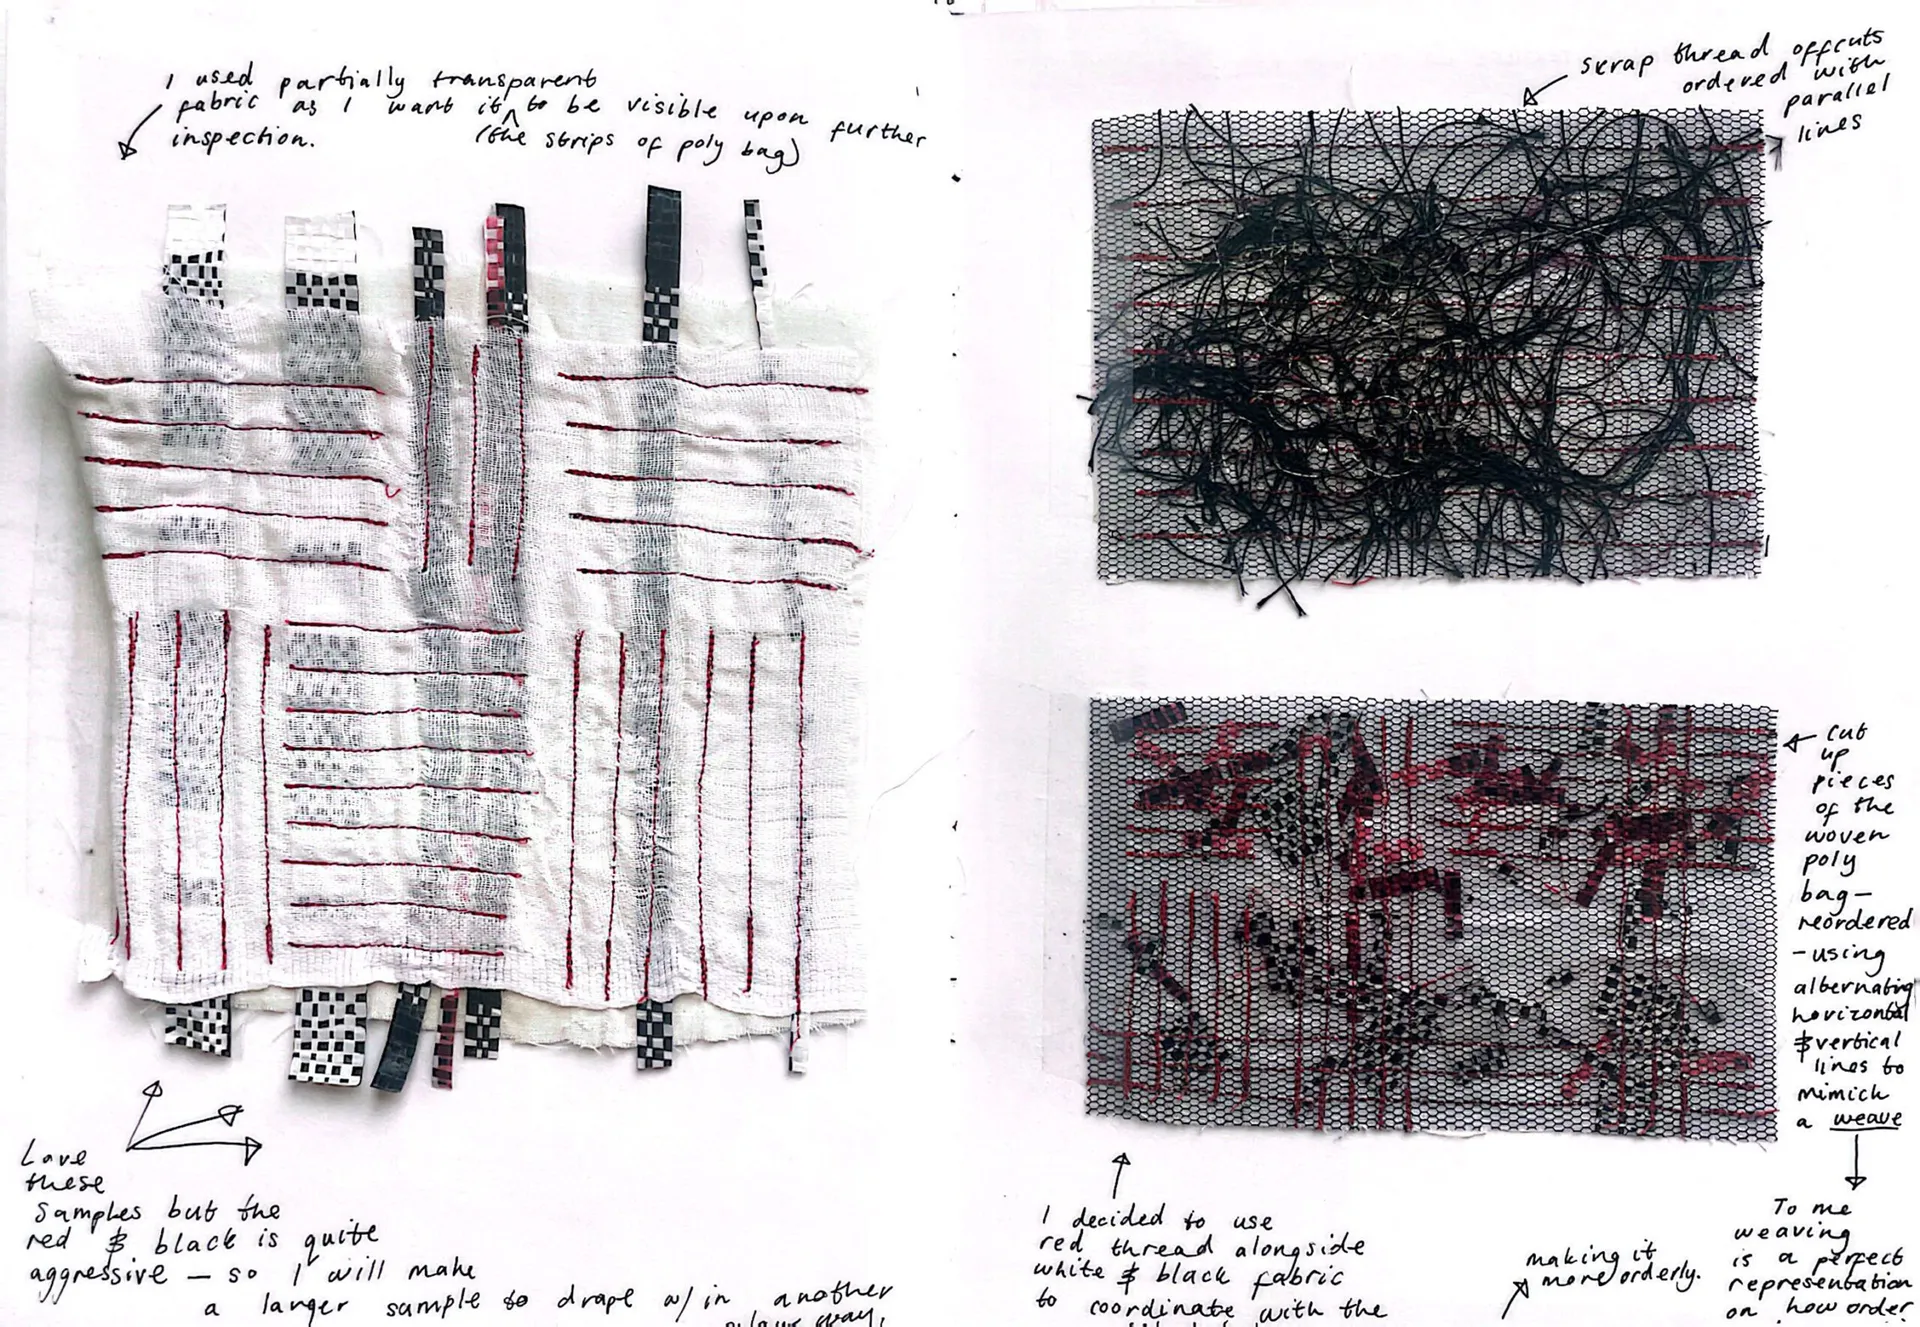 I used partially transparent
fabric as I want it ^ to be visible upon further
inspection. (the strips of poly bag)
Love
these
samples but the
red & black is quite
aggressive — so I will make
a larger sample to drape w/in another
way,
scrap thread offcuts
ordered with
parallel
lines
cut
up
pieces
of the
woven
poly
bag—
reordered
- using
alternating
horizontal
& vertical
lines to
mimick
a weave
To me
weaving
is a perfect
representation
on how order
making it
more orderly.
I decided to use
red thread alongside
white & black fabric
to coordinate with the